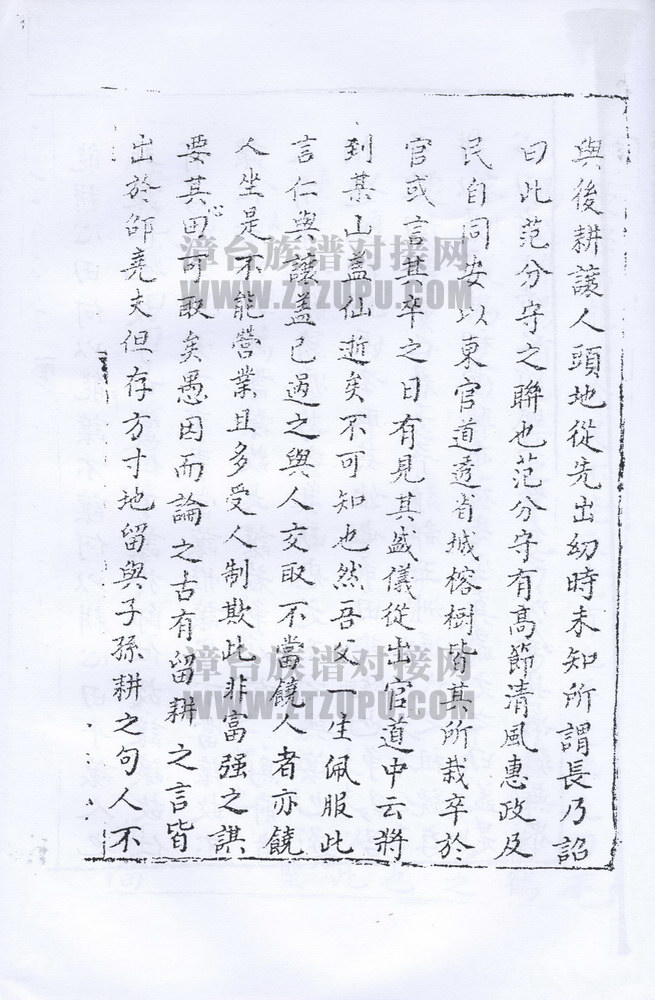 與後耕讓人頭地從先出幼時未知所謂長乃詔
曰此范分守之聯也范分守有高節清風惠政及
民自同安以東官道透省城榕樹皆其所栽卒於
官或言其卒之日有見其盛儀從出官道中云將
到某山蓋仙逝矣不可知也然吾父一生佩服此
言仁與讓蓋已過之與人交取不當饒人者亦饒
人坐是不能營業且多受人制欺此非富强之謀
要其心田可取矣愚因而論之古有留耕之言皆
出於邵堯夫但存方寸地留與子孫耕之句人不
漳台族谱对接网
WWW.ZTZUPU.COM
漳台族谱对接网
WWW.ZTZUPU.COM